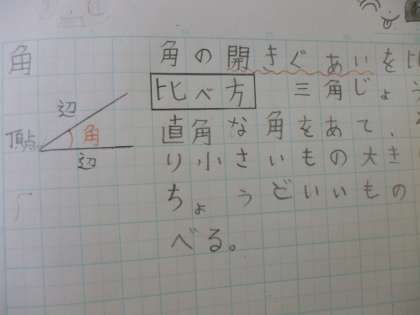 角
辺
角
頂点
辺
角の開きぐあいを比
比べ方 三角じょう
直角な角をあて、
り小さいもの大き
ちょうどいいもの
べる。